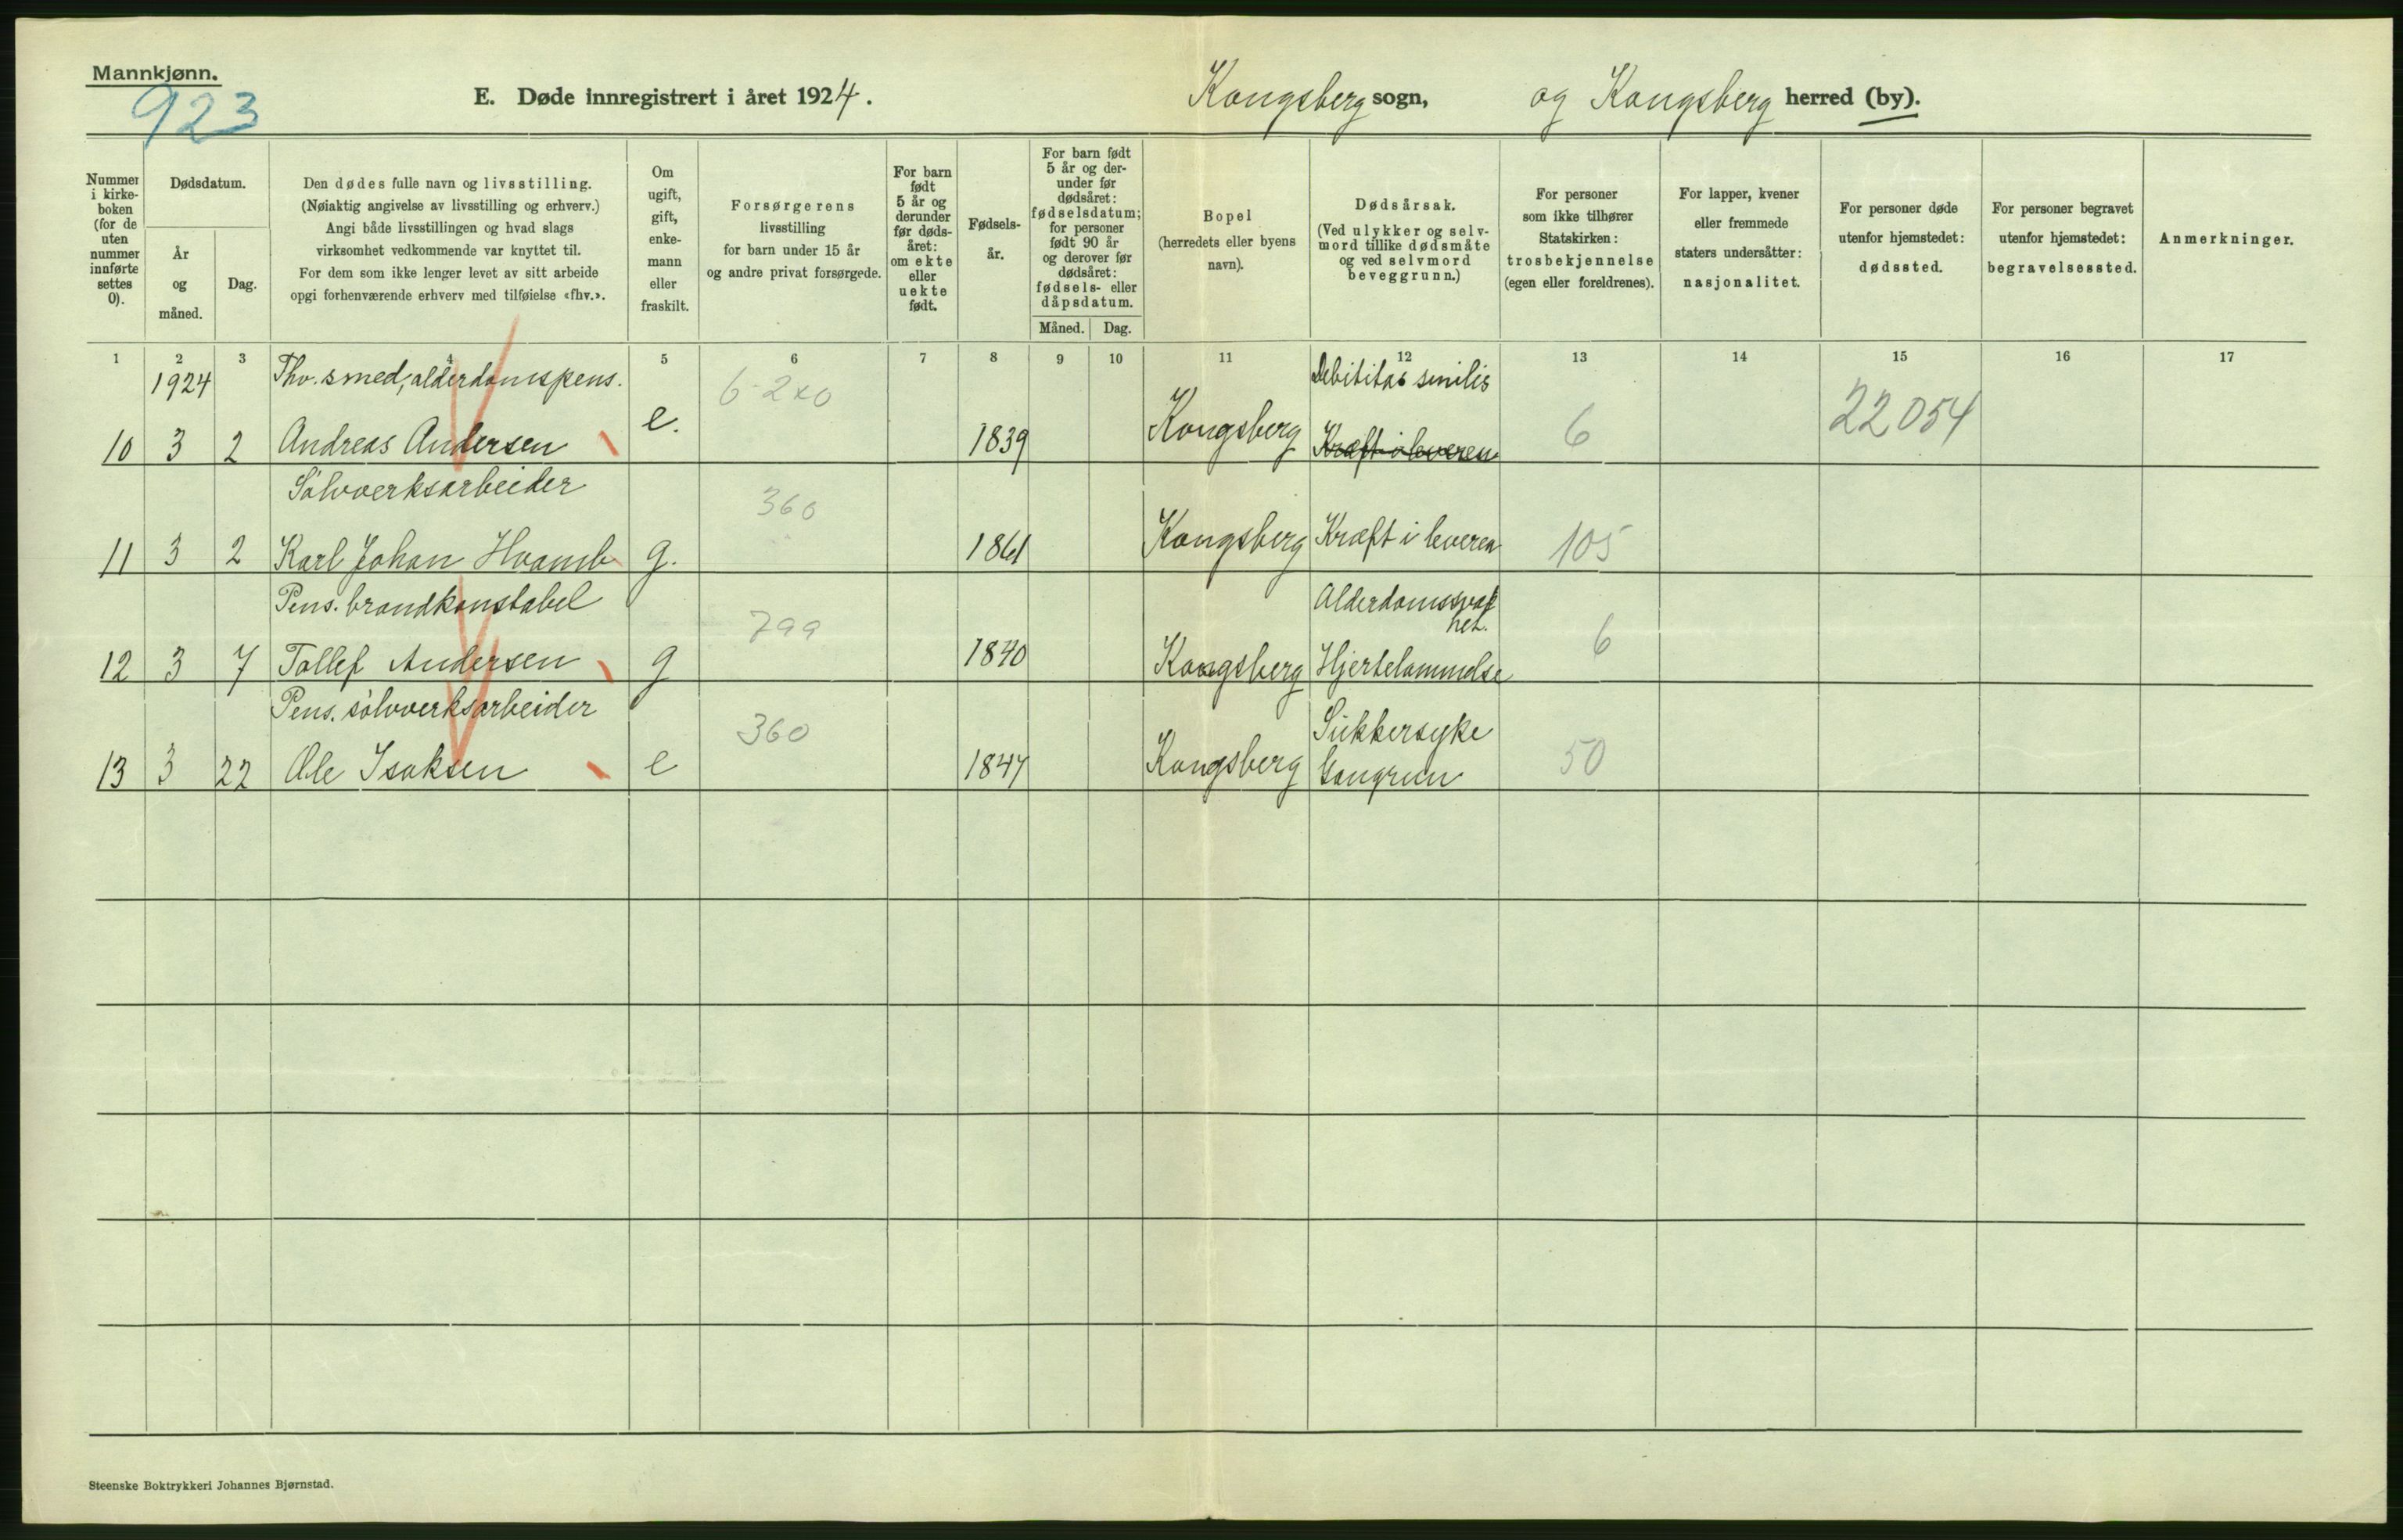 Mannkjønn.
923
E. Døde innregistrert i året 1924.
Kongsberg sogn, og Kongsberg herred (by).
Nummer i kirke-boken (for de uten nummer innførte settes 0).
Dødsdatum.
År og måned.
Dag.
Den dødes fulle navn og livsstilling.
(Nøiaktig angivelse av livsstilling og erhverv.)
Angi både livsstillingen og hvad slags
virksomhet vedkommende var knyttet til.
For dem som ikke lenger levet av sitt arbeide
opgi forhenværende erhverv med tilføielse «fhv.».
Om ugift, gift, enke-mann eller fraskilt.
Forsørgerens
livsstilling
for barn under 15 år
og andre privat forsørgede.
For barn født 5 år og derunder før døds-året: om ekte eller uekte født.
Fødsels-år.
For barn født 5 år og der-under før dødsåret: fødselsdatum; for personer født 90 år og derover før dødsåret: fødsels- eller dåpsdatum.
Måned. Dag.
Bopel
(herredets eller byens
navn).
Dødsårsak.
(Ved ulykker og selv-
mord tillike dødsmåte
og ved selvmord
beveggrunn.)
For personer
som ikke tilhører
Statskirken:
trosbekjennelse
(egen eller foreldrenes).
For lapper, kvener
eller fremmede
staters undersåtter:
nasjonalitet.
For personer døde
utenfor hjemstedet:
dødssted.
For personer begravet
utenfor hjemstedet:
begravelsessted.
Anmerkninger.
1 2 3 4 5 6 7 8 9 10 11 12 13 14 15 16 17
1924 Fhv. smed, alderdomspens. 6-2x0 Debititas senilis
10 3 2 Andreas Andersen e. 1839 Kongsberg Kræft i leveren 6 22054
Sølvverksarbeider 360
11 3 2 Karl Johan Hvamb g. 1861 Kongsberg Kræft i leveren 105
Pens. brandkonstabel 799 Alderdomssvak
het.
12 3 7 Tollef Andersen g 1840 Kongsberg Hjertelammelse 6
Pens. sølvverksarbeider 360 Sukkersyke
13 3 22 Ole Isaksen e 1847 Kongsberg Gangren 50
Steenske Boktrykkeri Johannes Bjørnstad.